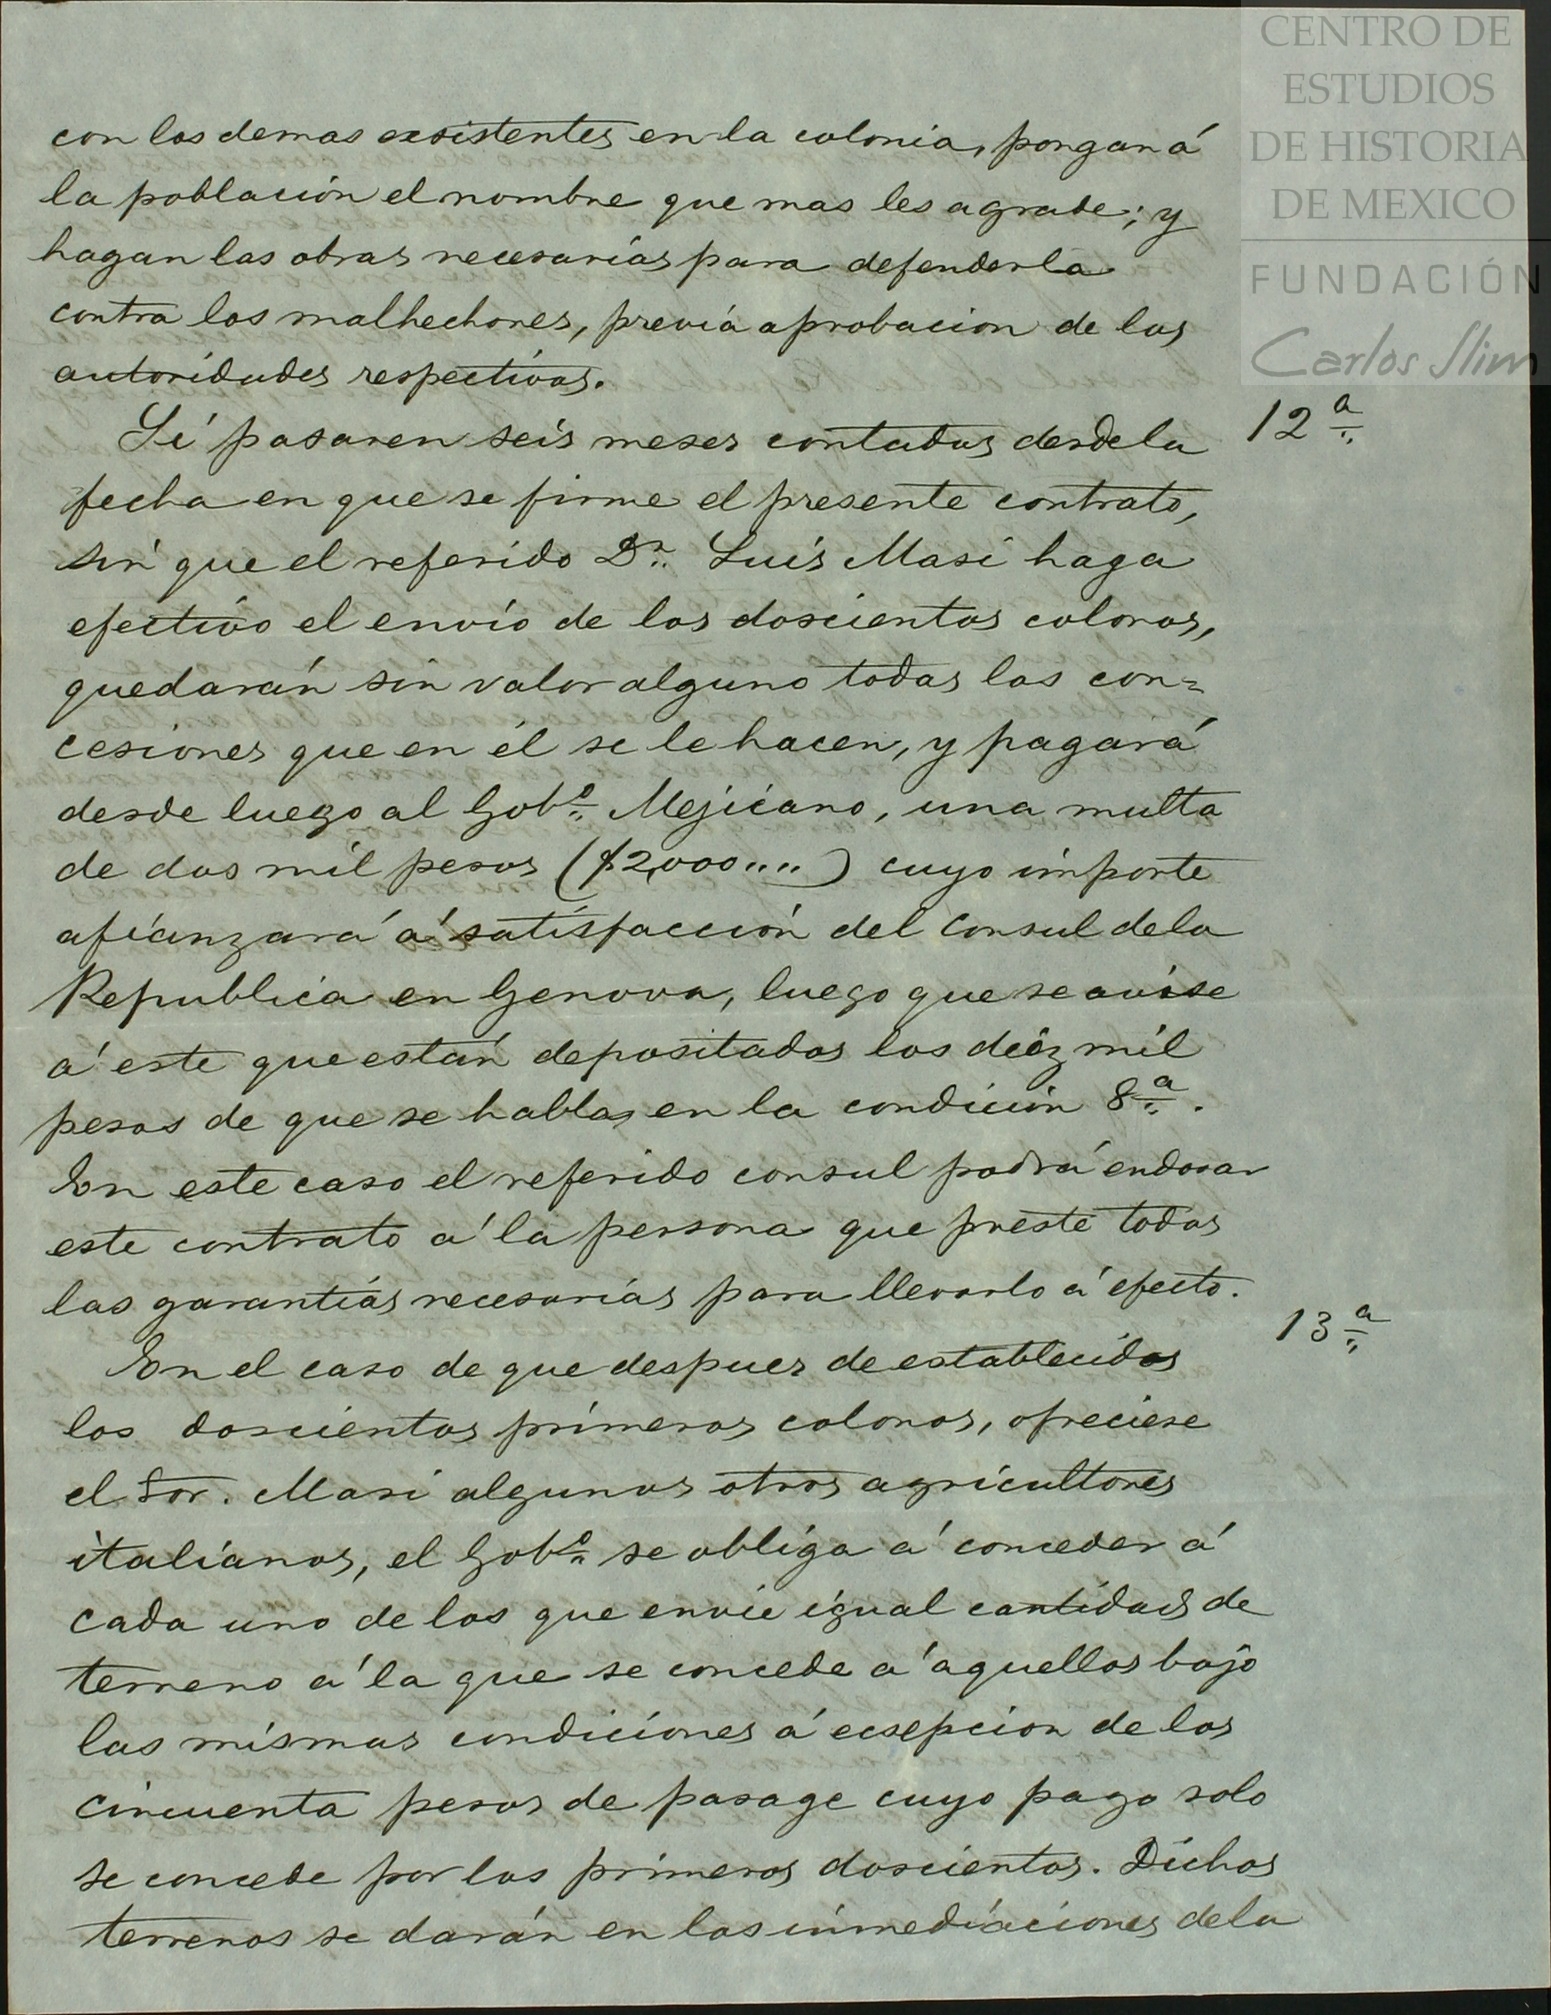 CENTRO DE
ESTUDIOS
DE HISTORIA
DE MEXICO
FUNDACIÓN
Carlos Slim
con los demas exsistentes en la colonia, pongan á
la población el nombre que mas les agrade; y
hagan las obras necesarias para defenderla
contra los malhechores, previa aprobacion de las
autoridades respectivas.
12ª
Si pasaren seis meses contados desde la
fecha en que se firme el presente contrato,
sin que el referido Dn. Luis Masi haga
efectivo el envío de los doscientos colonos,
quedarán sin valor alguno todas las con=
cesiones que en él se le hacen, y pagará
desde luego al Gobº Mejicano, una multa
de dos mil pesos ($2,000"") cuyo importe
afianzará á satisfacción del Consul de la
Republica en Genova, luego que se avise
á este que están depositados los diez mil
pesos de que se habla en la condición 8ª.
En este caso el referido consul podrá endosar
este contrato á la persona que preste todas
las garantias necesarias para llevarlo á efecto.
13ª
En el caso de que despues de establecidos
los doscientos primeros colonos, ofreciese
el Sor. Masi algunos otros agricultores
italianos, el Gobº se obliga á conceder á
cada uno de los que envie igual cantidad de
terreno á la que se concede á aquellos bajo
las mismas condiciones á ecsepcion de los
cincuenta pesos de pasage cuyo pago solo
se concede por los primeros doscientos. Dichos
terrenos se darán en las inmediaciones de la